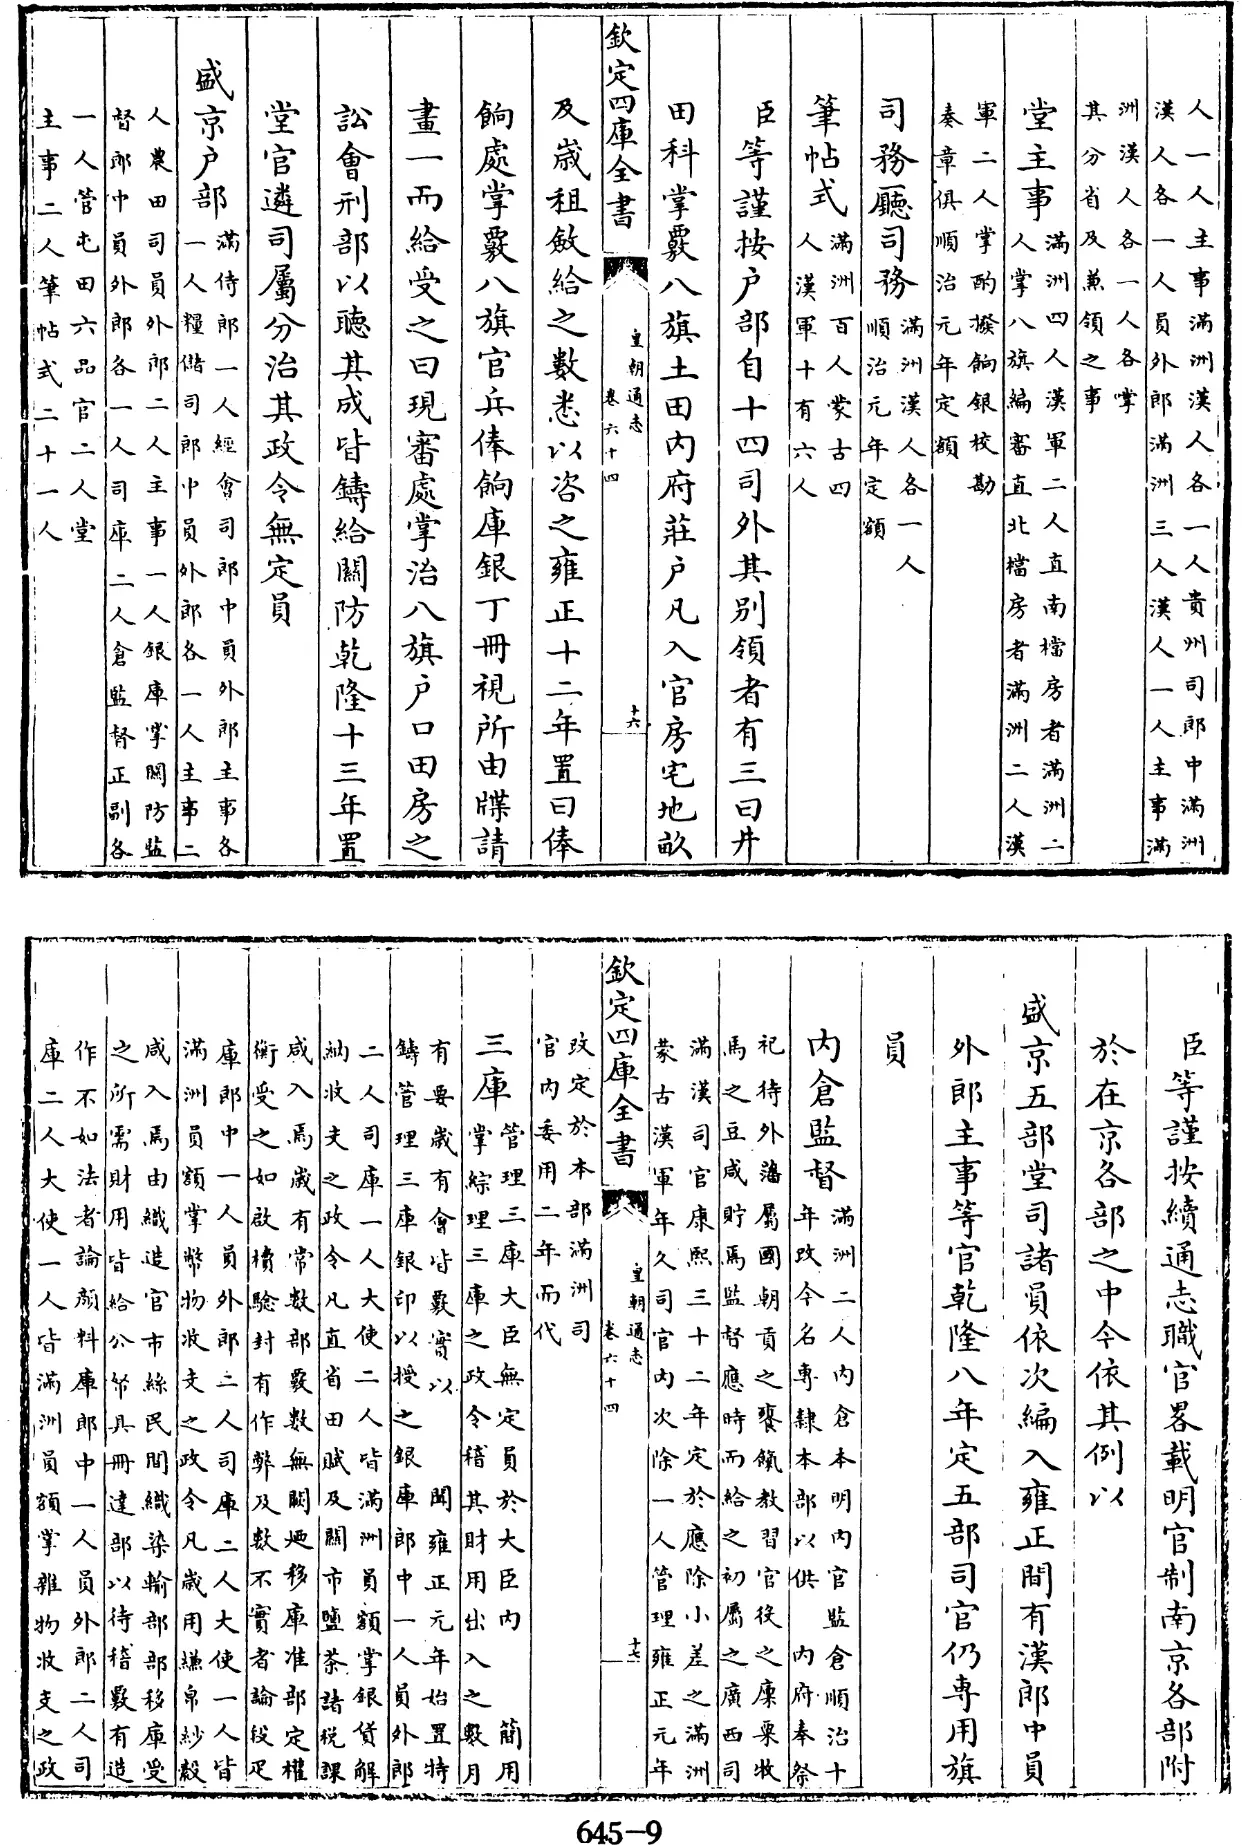 人一人主事滿洲漢人各一人貴州司郎中滿洲
漢人各一人員外郎滿洲三人漢人一人主事滿
洲漢人各一人各掌
其分省及兼領之事
堂主事滿洲四人漢軍二人直南檔房者滿洲二
人掌八旗編審直北檔房者滿洲二人漢
軍二人掌酌撥餉銀校勘
奏章俱順治元年定額
司務廳司務滿洲漢人各一人
順治元年定額
筆帖式滿洲百人蒙古四
人漢軍十有六人
臣等謹按户部自十四司外其别領者有三曰井
田科掌覈八旗土田内府莊户凡入官房宅地畝
欽定四庫全書
皇朝通志
卷六十四
十六
及嵗租敛給之數悉以咨之雍正十二年置曰俸
餉處掌覈八旗官兵俸餉庫銀丁冊視所由牒請
畫一而給受之曰現審處掌治八旗户口田房之
訟會刑部以聽其成皆鑄給關防乾隆十三年置
堂官遴司屬分治其政令無定員
盛京户部滿侍郎一人經會司郎中員外郎主事各
一人糧儲司郎中員外郎各一人主事二
人農田司員外郎二人主事一人銀庫掌關防監
督郎中員外郎各一人司庫二人倉監督正副各
一人管屯田六品官二人堂
主事二人筆帖式二十一人
臣等謹按續通志職官畧載明官制南京各部附
於在京各部之中今依其例以
盛京五部堂司諸員依次編入雍正間有漢郎中員
外郎主事等官乾隆八年定五部司官仍專用旗
員
内倉監督滿洲二人内倉本明内官監倉順治十
年改今名專隸本部以供 内府奉祭
祀待外藩屬國朝貢之饔餼教習官役之廩粟牧
馬之豆咸貯焉監督應時而給之初屬之廣西司
滿漢司官康熙三十二年定於應除小差之滿洲
蒙古漢軍年久司官内次除一人管理雍正元年
欽定四庫全書
皇朝通志
卷六十四
十七
改定於本部滿洲司
官内委用二年而代
三庫管理三庫大臣無定員於大臣内 簡用
掌綜理三庫之政令稽其財用出入之數月
有要嵗有會皆覈實以 聞雍正元年始置特
鑄管理三庫銀印以授之銀庫郎中一人員外郎
二人司庫一人大使二人皆滿洲員額掌銀貨解
納收支之政令凡直省田賦及關市鹽茶諸税課
咸入焉嵗有常數部覈數無闕廼移庫准部定權
衡受之如啟櫝驗封有作弊及數不實者論役疋
庫郎中一人員外郎二人司庫二人大使一人皆
滿洲員額掌幣物收支之政令凡嵗用縑帛紗縠
咸入焉由織造官市絲民間織染輸部部移庫受
之所需財用皆給公帑具冊達部以待稽覈有造
作不如法者論顔料庫郎中一人員外郎二人司
庫二人大使一人皆滿洲員額掌雜物收支之政
645-9